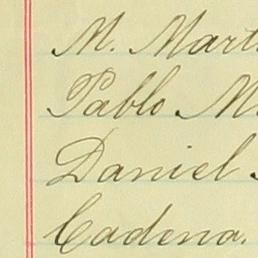 M. Mart
Pablo M
Daniel
Cadena.